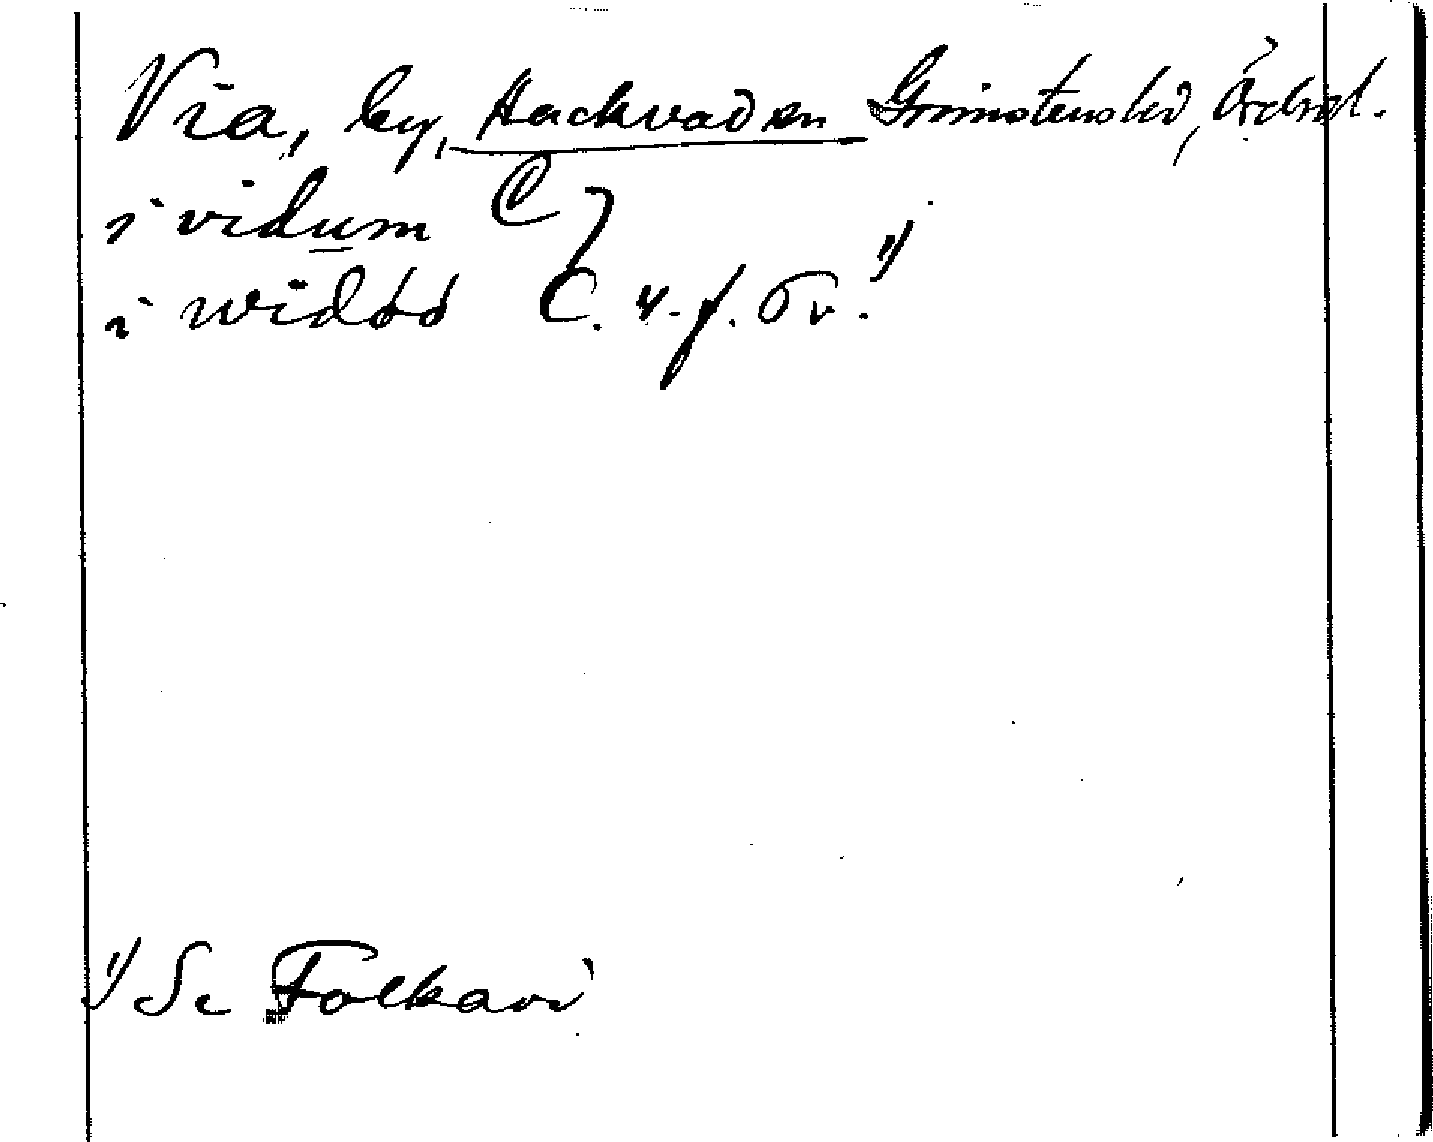 Via, by, Hackvad sn Grimstens hd, Örebr. l.
i vidum C }
i widóó C. 4. f. 5 v. 1)
1) Se Folkavi